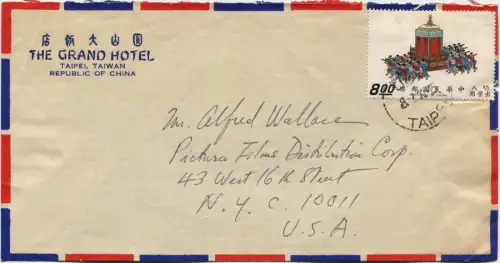 店飯大山圓
THE GRAND HOTEL
TAIPEI, TAIWAN
REPUBLIC OF CHINA
8.00
TAIP
Mr. Alfred Wallace
Pictura Films Distribution Corp.
43 West 16th Street
N.Y.C. 10011
U.S.A.